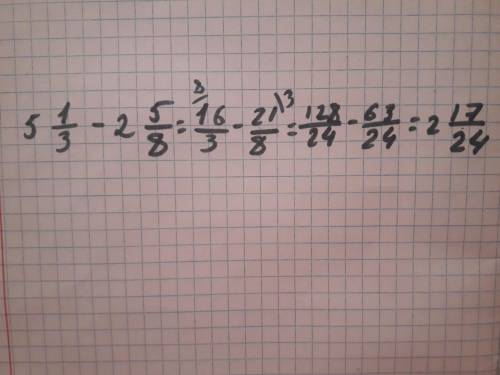 5 1/3 - 2 5/8 = 16/3 \8 - 21/8 \3 = 128/24 - 63/24 = 2 17/24